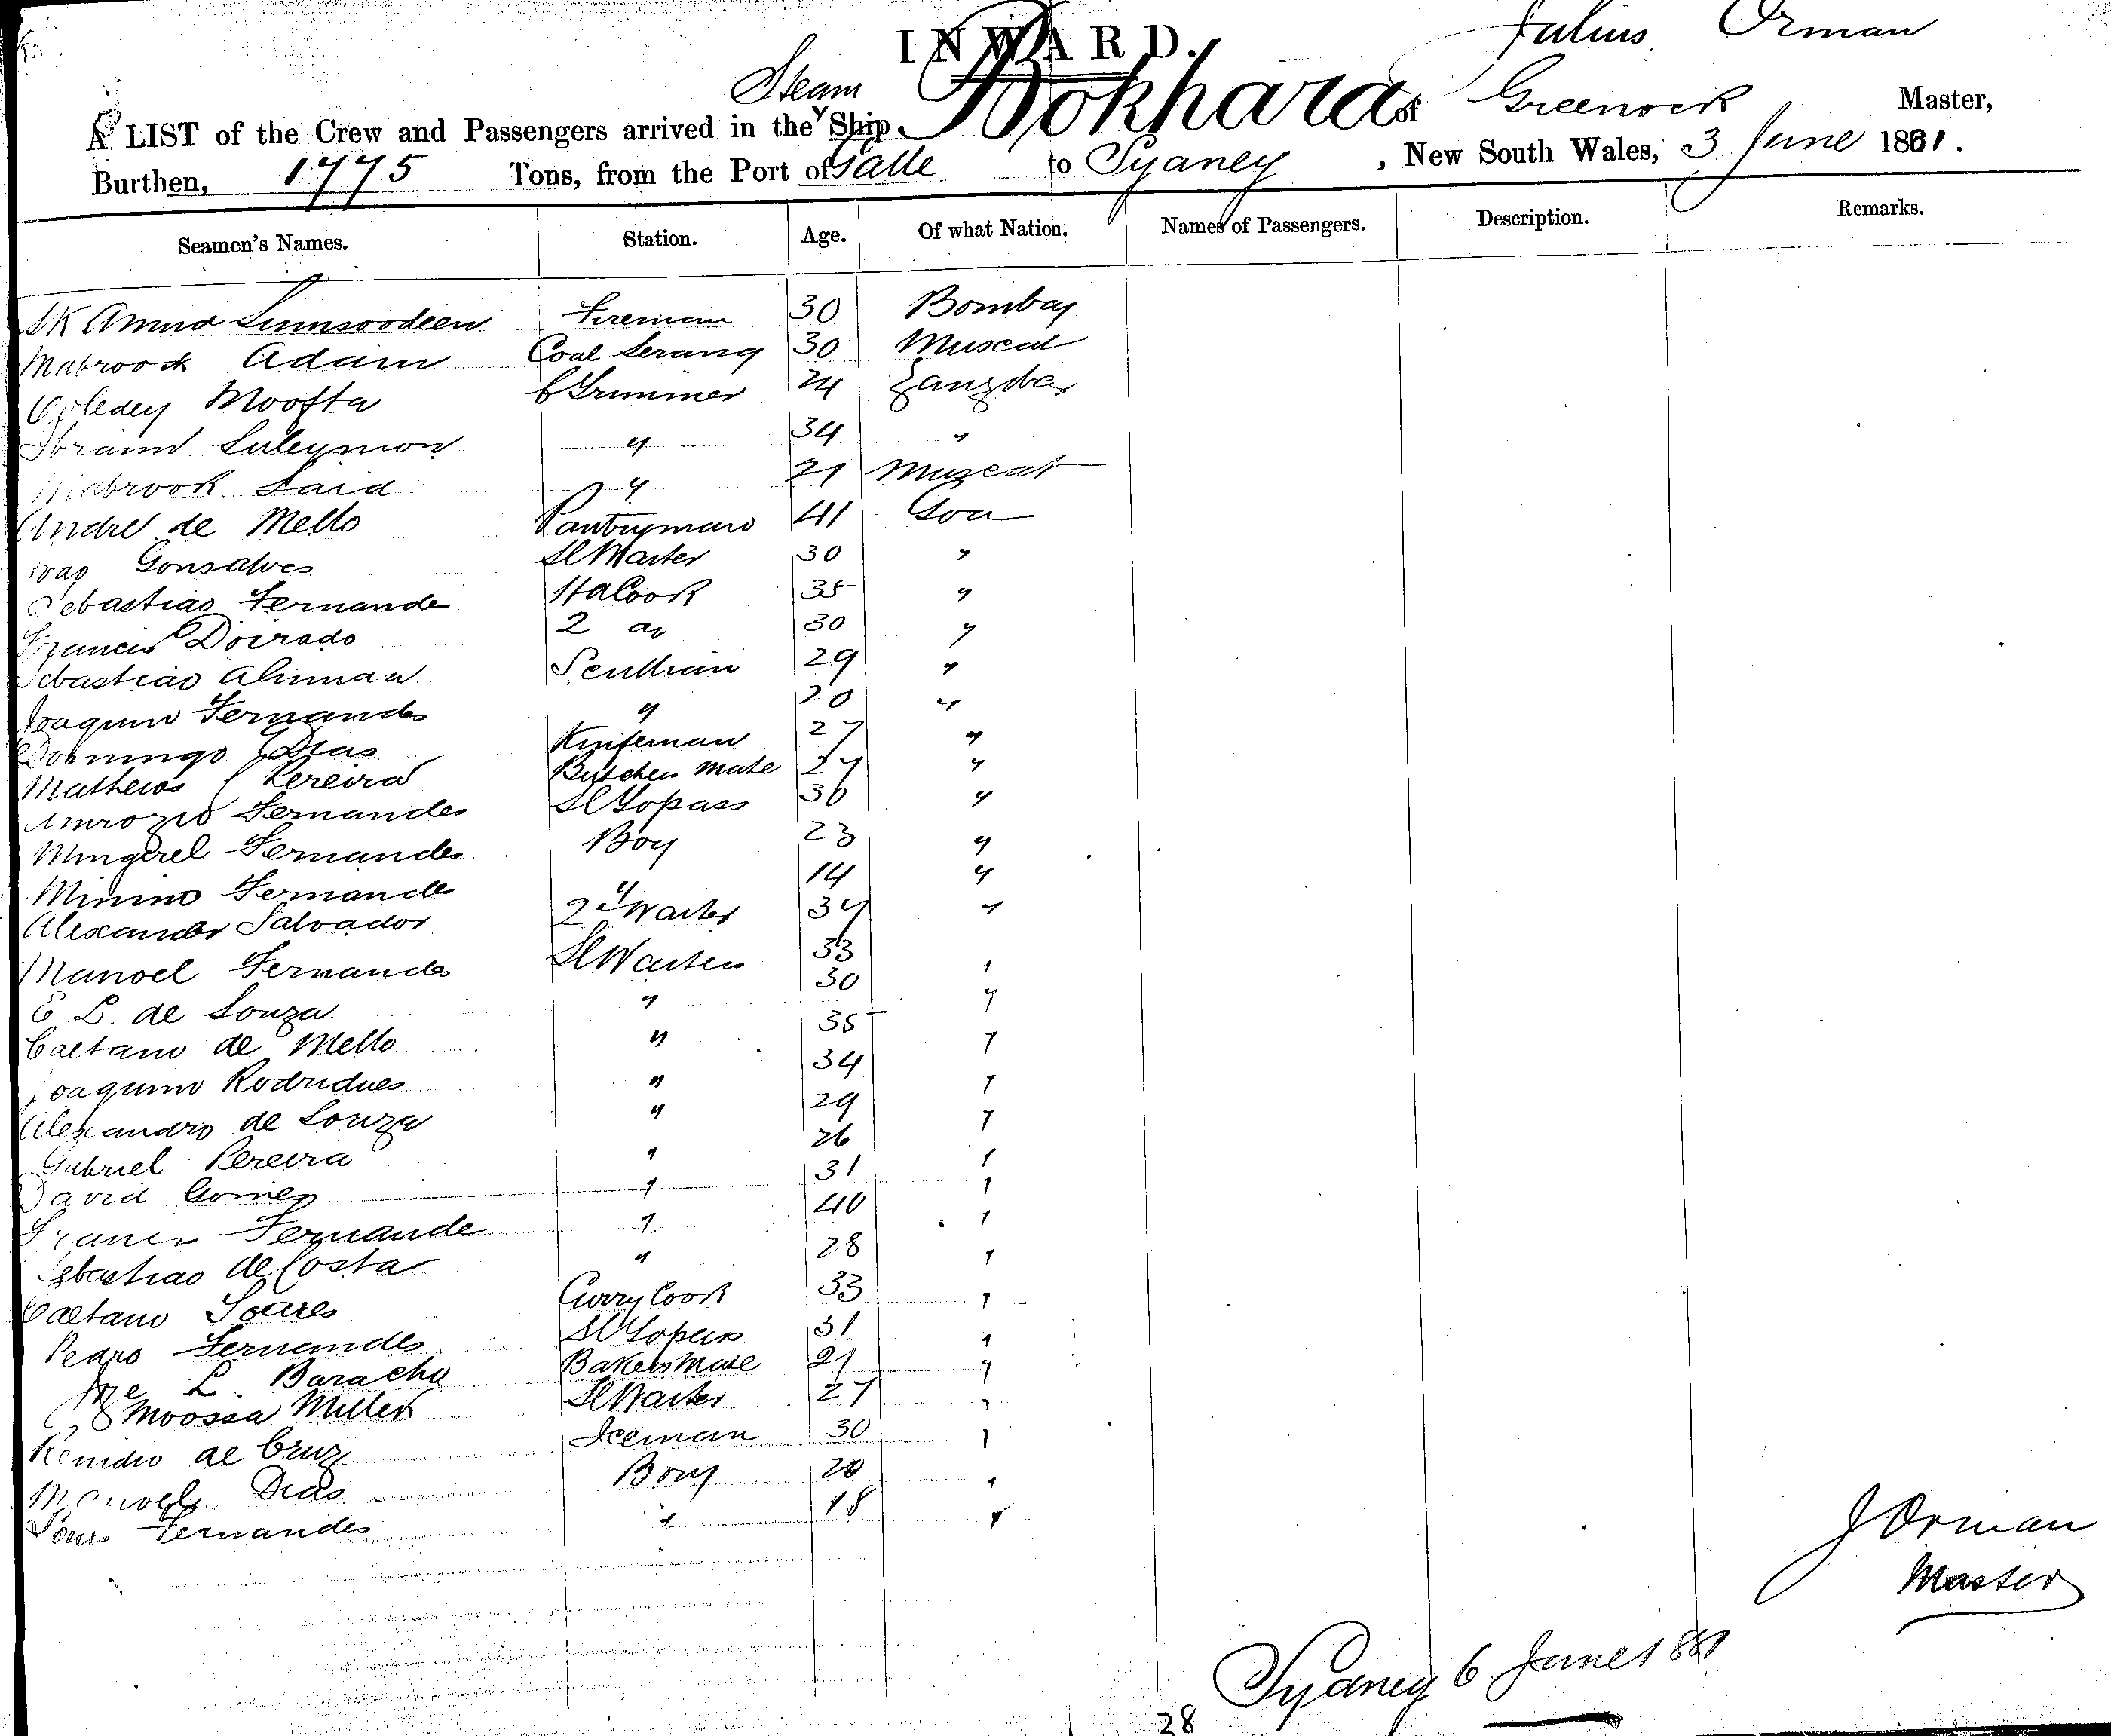 INWARD.
Julius Orman
Steam
A LIST of the Crew and Passengers arrived in the Ship Bokhara of Greenock Master,
Burthen, 1775 Tons, from the Port of Galle to Sydney, New South Wales, 3 June 1881.
Seamen's Names. Station. Age. Of what Nation. Names of Passengers. Description. Remarks.
Fireman 30 Bombay
Mabrook Adam Coal Serang 30 Muscat
Moofta C Trimmer 24 Zanzibar
Suleymon " 34 "
Mabrook Said " 21 Muscat
Andre de Mello Pantryman 41 Goa
Gonsalves Sl Waiter 30 "
Sebastiao Fernandes Cook 35 "
Francis Doirado 2 do 30 "
Sebastiao 29 "
Joaquim Fernandes " 20 "
Domingo Dias Knifeman 27 "
Matheios Pereira Butchers Mate 27 "
Fernandes Sl Topass 36 "
Fernandes Boy 23 "
Minino Fernandes " 14 "
Alexander Salvador 2d Waiter 34 "
Manoel Fernandes Sl Waiter 33 "
C. L. de Souza " 30 "
Caetano de Mello " 35 "
Joaquim Rodridues " 34 "
Alexandro de Souza " 29 "
Gabriel Pereira " 26 "
David Gomes " 31 "
Francis Fernandes " 40 "
Sebastiao de Costa " 28 "
Caetano Soares Curry Cook 33 "
Pedro Fernandes Sl Topass 31 "
L. Baracho Bakers Mate 21 "
Moossa Miller Sl Waiter 27 "
de Cruz Iceman 30 "
Manoel Dias Boy 20 "
Fernandes " 18 "
J Orman
Master
Sydney 6 June 1881
28